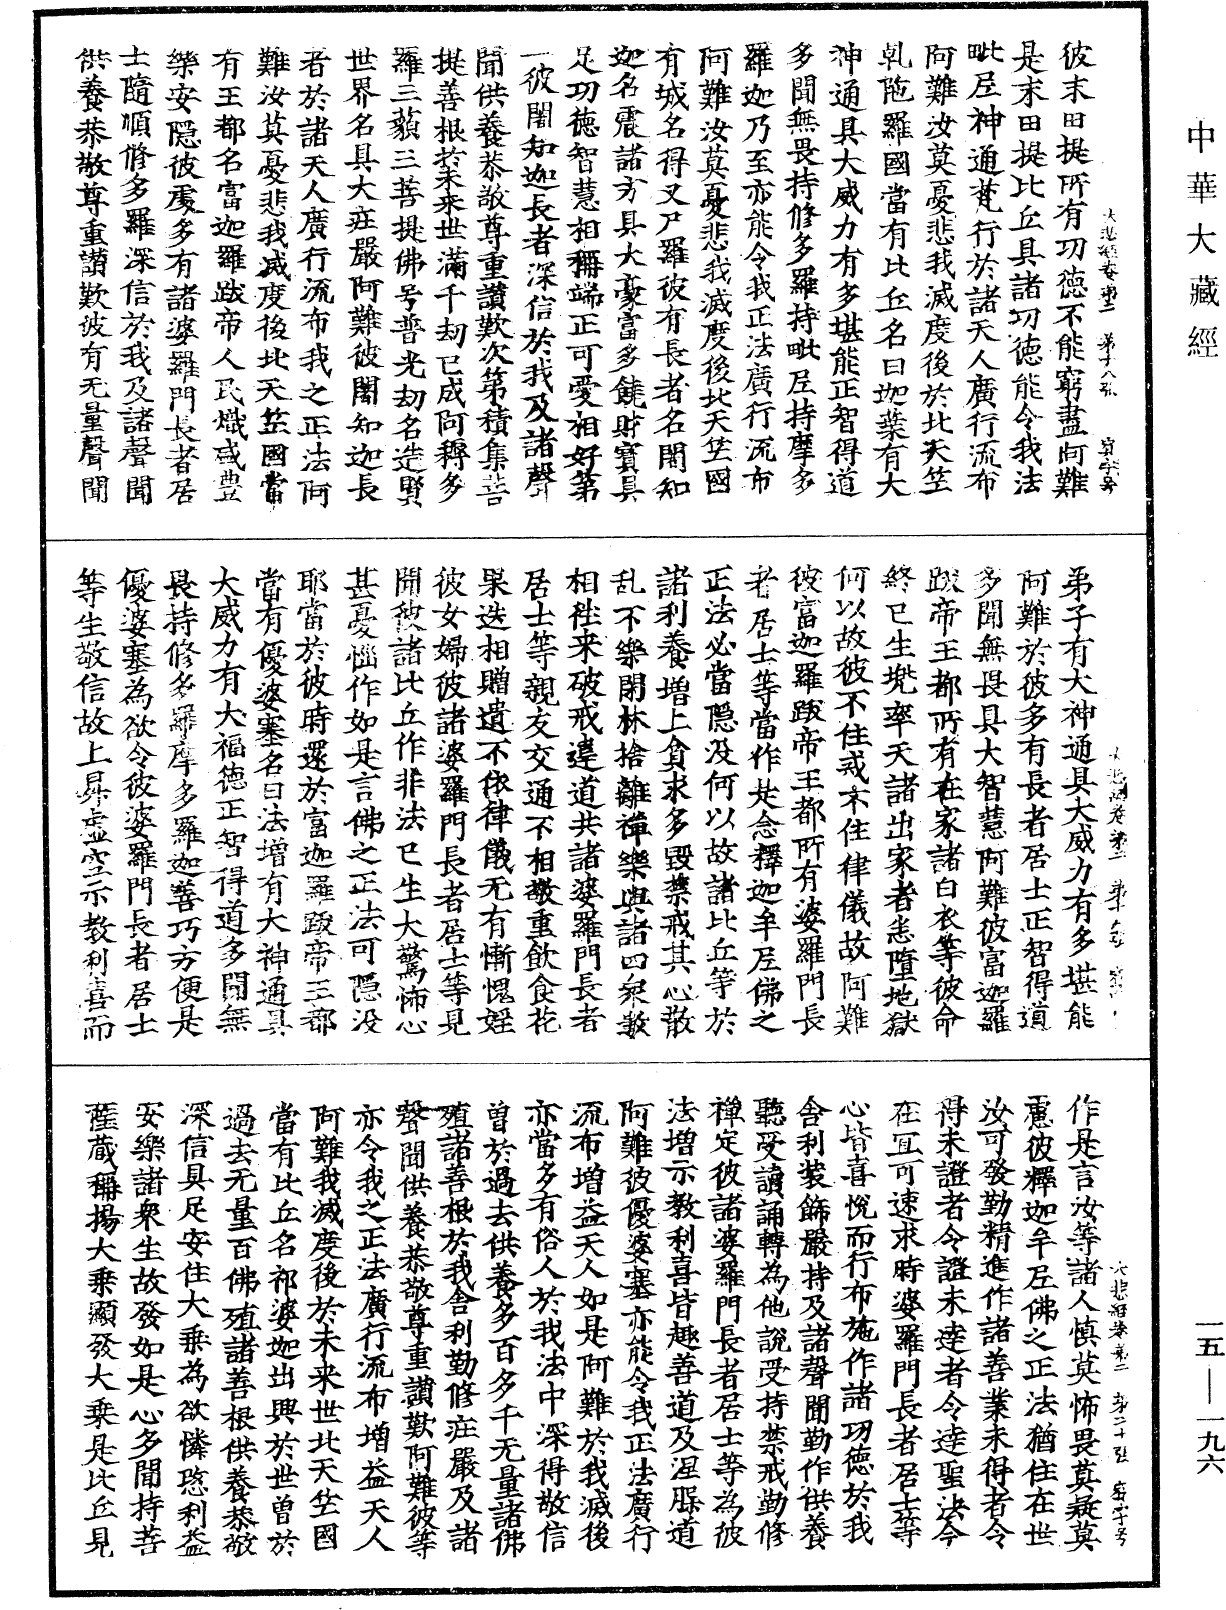 中華大藏經
彼末田提所有功德不能窮盡阿難
是末田提比丘具諸功德能令我法
毗尼神通梵行於諸天人廣行流布
阿難汝莫憂悲我滅度後於北天竺
乹陁羅國當有比丘名曰迦葉有大
神通具大威力有多堪能正智得道
多聞無畏持修多羅持毗尼持摩多
羅迦乃至亦能令我正法廣行流布
阿難汝莫憂悲我滅度後北天竺國
有城名得叉尸羅彼有長者名闍知
迦名震諸方具大豪富多饒財寶具
足功德智慧相稱端正可愛相好第
一彼闍知迦長者深信於我及諸聲
聞供養恭敬尊重讚歎次第積集菩
提善根於未來世滿千劫已成阿耨多
羅三藐三菩提佛号普光劫名造賢
世界名具大莊嚴阿難彼闍知迦長
者於諸天人廣行流布我之正法阿
難汝莫憂悲我滅度後北天竺國當
有王都名富迦羅跋帝人民熾盛豊
樂安隱彼處多有諸婆羅門長者居
士隨順修多羅深信於我及諸聲聞
供養恭敬尊重讃歎彼有无量聲聞
大悲經卷第二 第十八张 賓字号
弟子有大神通具大威力有多堪能
阿難於彼多有長者居士正智得道
多聞無畏具大智慧阿難彼富迦羅
跋帝王都所有在家諸白衣等彼命
終已生兜率天諸出家者悉墮地獄
何以故彼不住戒不住律儀故阿難
彼富迦羅跋帝王都所有婆羅門長
者居士等當作是念釋迦牟尼佛之
正法必當隱没何以故諸比丘等於
諸利養增上貪求多毀禁戒其心散
乱不樂閑林捨離禪樂與諸四衆數
相徃来破戒違道共諸婆羅門長者
居士等親友交通不相敬重飲食花
果迭相贈遺不依律儀无有慚愧婬
彼女婦彼諸婆羅門長者居士等見
聞彼諸比丘作非法已生大驚怖心
甚憂惱作如是言佛之正法可隱没
耶當於彼時還於富迦羅跋帝王都
當有優婆塞名曰法增有大神通具
大威力有大福德正智得道多聞無
畏持修多羅摩多羅迦善巧方便是
優婆塞為欲令彼婆羅門長者居士
等生敬信故上昇虛空示教利喜而
作是言汝等諸人慎莫怖畏莫疑莫
慮彼釋迦牟尼佛之正法猶住在世
汝可發勤精進作諸善業未得者令
得未證者令證未達者令達聖法今
在宜可速求時婆羅門長者居士等
心皆喜悅而行布施作諸功德於我
舍利裝飾嚴持及諸聲聞勤作供養
聽受讀誦轉為他說受持禁戒勤修
禪定彼諸婆羅門長者居士等為彼
法增示教利喜皆趣善道及涅槃道
阿難彼優婆塞亦能令我正法廣行
流布增益天人如是阿難於我滅後
亦當多有俗人於我法中深得敬信
曾於過去供養多百多千无量諸佛
殖諸善根於我舍利勤修莊嚴及諸
聲聞供養恭敬尊重讃歎阿難彼等
亦令我之正法廣行流布增益天人
阿難我滅度後於未來世北天竺國
當有比丘名祁婆迦出興於世曾於
過去无量百佛殖諸善根供養恭敬
深信具足安住大乗為欲憐愍利益
安樂諸衆生故發如是心多聞持菩
薩藏稱揚大乗顯發大乗是比丘見
大悲經卷第二 第二十张 賓字号
一五——一九六